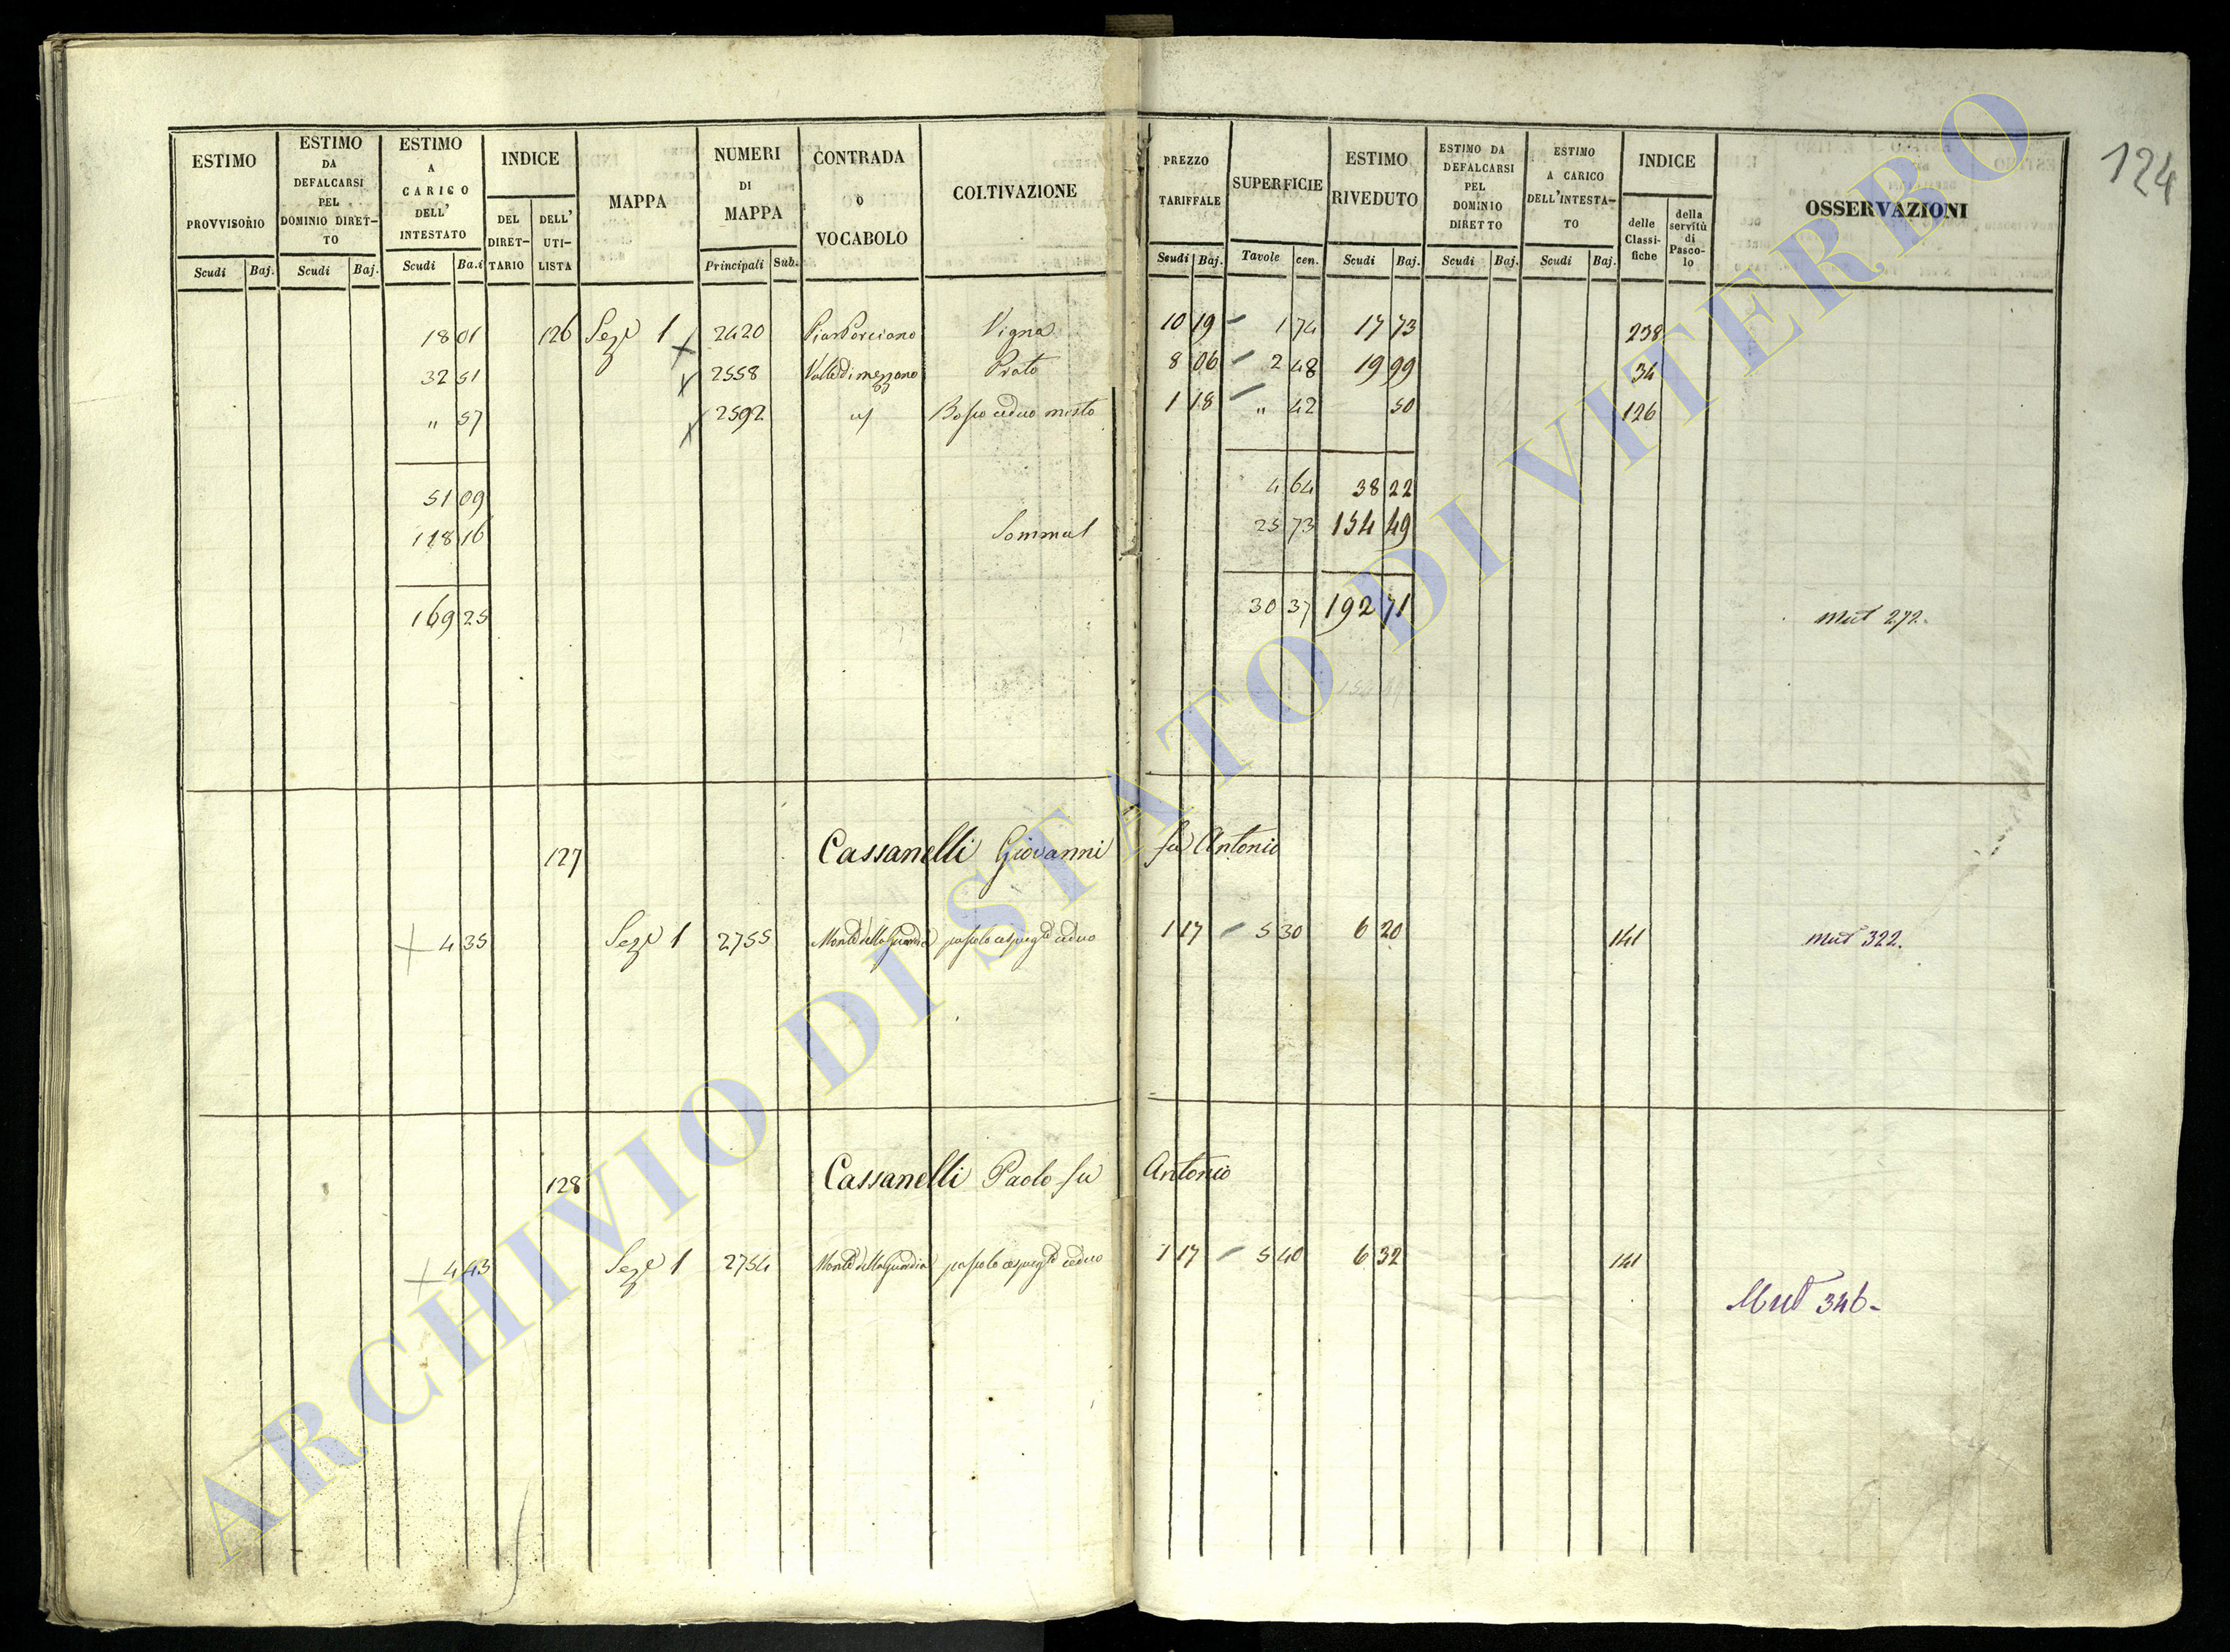 124
ESTIMO PROVVISORIO | ESTIMO DA DEFALCARSI PEL DOMINIO DIRET-TO | ESTIMO A CARICO DELL' INTESTATO | INDICE | MAPPA | NUMERI DI MAPPA | CONTRADA o VOCABOLO | COLTIVAZIONE | PREZZO TARIFFALE | SUPERFICIE | ESTIMO RIVEDUTO | ESTIMO DA DEFALCARSI PEL DOMINIO DIRETTO | ESTIMO A CARICO DELL'INTESTA-TO | INDICE | OSSERVAZIONI
DEL DIRET-TARIO | DELL' UTI-LISTA | delle Classi-fiche | della servitù di Pasco-lo
Scudi | Baj. | Scudi | Baj. | Scudi | Ba.i | Principali | Sub. | Scudi | Baj. | Tavole | cen. | Scudi | Baj. | Scudi | Baj. | Scudi | Baj.
18 01 126 Sez.e 1 2420 Vigna 10 19 1 74 17 73 238
32 51 2558 Valle di mezzano Prato 8 06 2 48 19 99 34
" 57 2592 Bosco ceduo misto 1 18 " 42 50 126
51 09 4 64 38 22
118 16 25 73 154 49
169 25 30 37 192 71 Mut 272.
127 Cassanelli Giovanni fu Antonio
4 35 Sez.e 1 2755 Monte della Guardia pascolo cespugl.to ceduo 1 17 5 30 6 20 141 Mut 322.
128 Cassanelli Paolo fu Antonio
4 43 Sez.e 1 2754 Monte della Guardia pascolo cespugl.to ceduo 1 17 5 40 6 32 141
Mut 346-
ARCHIVIO DI STATO DI VITERBO